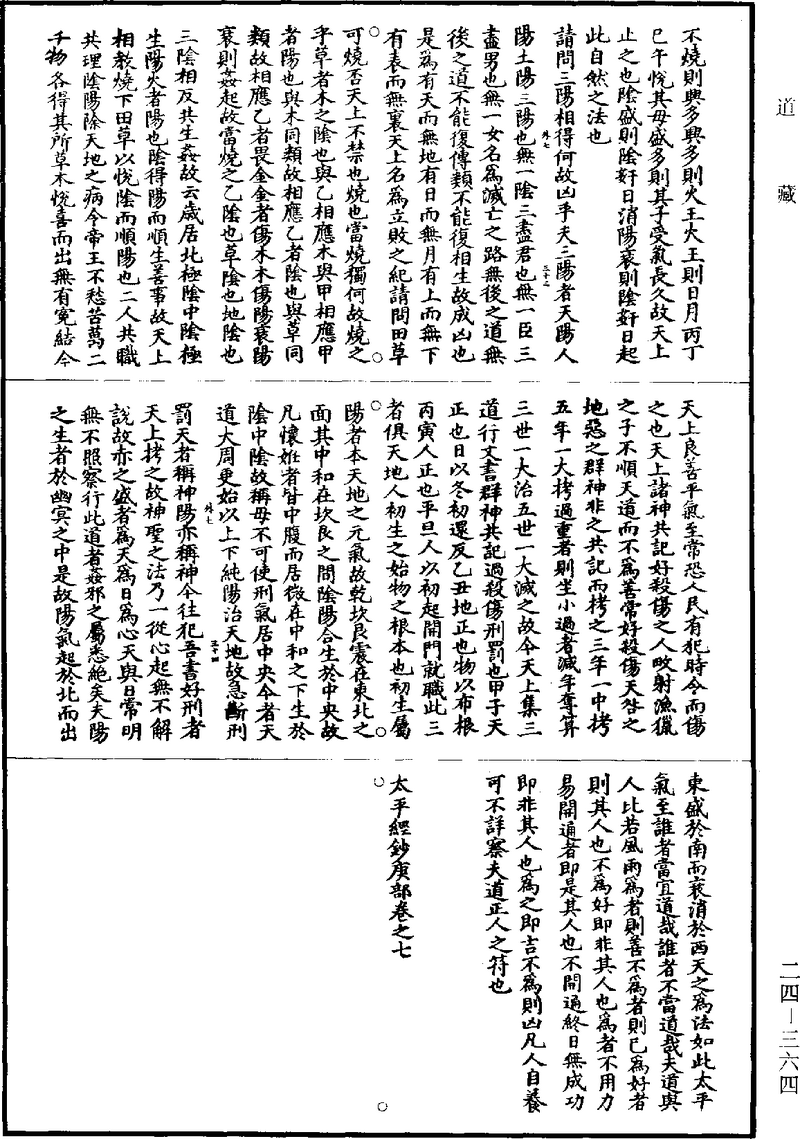 道藏
不燒則興多興多則火王火王則日月丙丁
巳午悅其母盛多則其子受氣長久故天上
止之也陰盛則陰奸日消陽衰則陰奸日起
此自然之法也
請問三陽相得何故凶乎夫三陽者天陽人
陽土陽三陽也無一陰三盡君也無一臣三
盡男也無一女名為滅亡之路無後之道無
後之道不能復傳類不能復相生故成凶也
是為有天而無地有日而無月有上而無下
有表而無裏天上名為立敗之紀請問田草
可燒否天上不禁也燒也當燒獨何故燒之
乎草者木之陰也與乙相應木與甲相應甲
者陽也與木同類故相應乙者陰也與草同
類故相應乙者畏金金者傷木木傷陽衰陽
衰則姦起故當燒之乙陰也草陰也地陰也
三陰相反共生姦故云歲居北極陰中陰極
生陽火者陽也陰得陽而順生善事故天上
相教燒下田草以悅陰而順陽也二人共職
共理陰陽除天地之病今帝王不愁苦萬二
千物各得其所草木悅喜而出無有冤結今
天上良善平氣至常恐人民有犯時令而傷
之也天上諸神共記好殺傷之人畋射漁獵
之子不順天道而不為善常好殺傷天咎之
地惡之群神非之共記而拷之三年一中拷
五年一大拷過重者則坐小過者減年奪算
三世一大治五世一大滅之故今天上集三
道行文書群神共記過殺傷刑罰也甲子天
正也日以冬初還反乙丑地正也物以布根
丙寅人正也平旦人以初起開門就職此三
者俱天地人初生之始物之根本也初生屬
陽者本天地之元氣故乾坎艮震在東北之
面其中和在坎艮之間陰陽合生於中央故
凡懷姙者皆中腹而居微在中和之下生於
陰中陰故稱母不可使刑氣居中央今者天
道大周更始以上下純陽治天地故急斷刑
罰天者稱神陽亦稱神今往犯吾書好刑者
天上拷之故神聖之法乃一從心起無不解
說故赤之盛者為天為日為心天與日常明
無不照察行此道者姦邪之屬悉絶矣夫陽
之生者於幽冥之中是故陽氣起於北而出
東盛於南而衰消於西天之為法如此太平
氣至誰者當宜道哉誰者不當道哉夫道與
人比若風雨為者則善不為者則已為好者
則其人也不為好即非其人也為者不用力
易開通者即是其人也不開通終日無成功
即非其人也為之即吉不為則凶凡人自養
可不詳察夫道正人之符也
太平經鈔庚部卷之七
二四－三六四